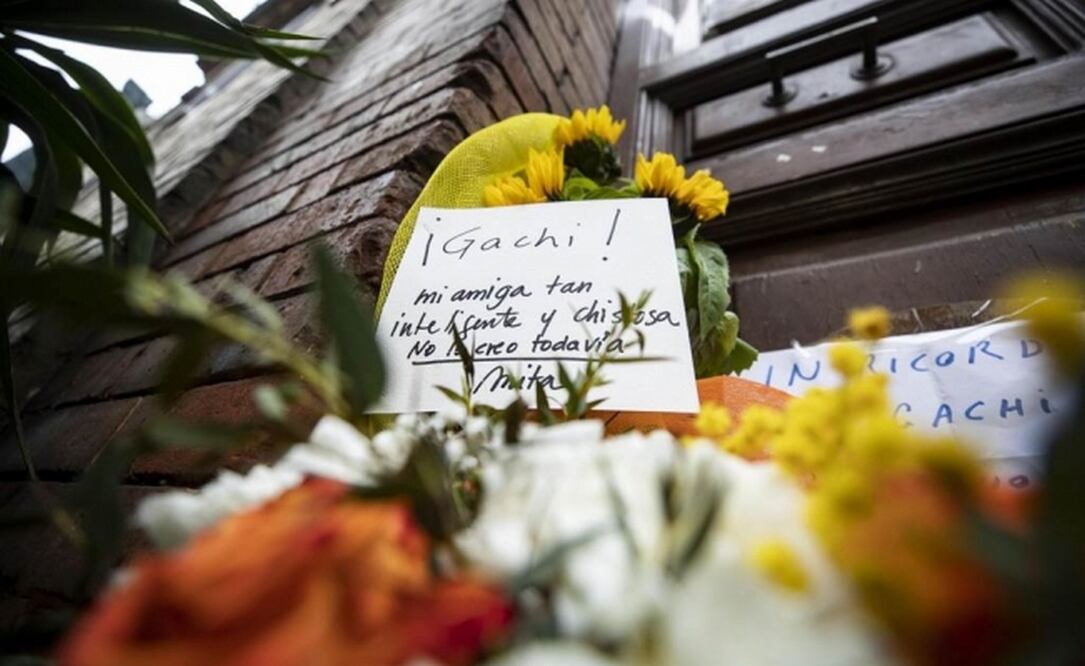 ¡Gachi!
mi amiga tan
inteligente y chistosa
No lo creo todavía
Mita
IN RICORD
GACHI